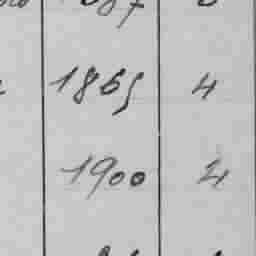 1865 4
1900 4